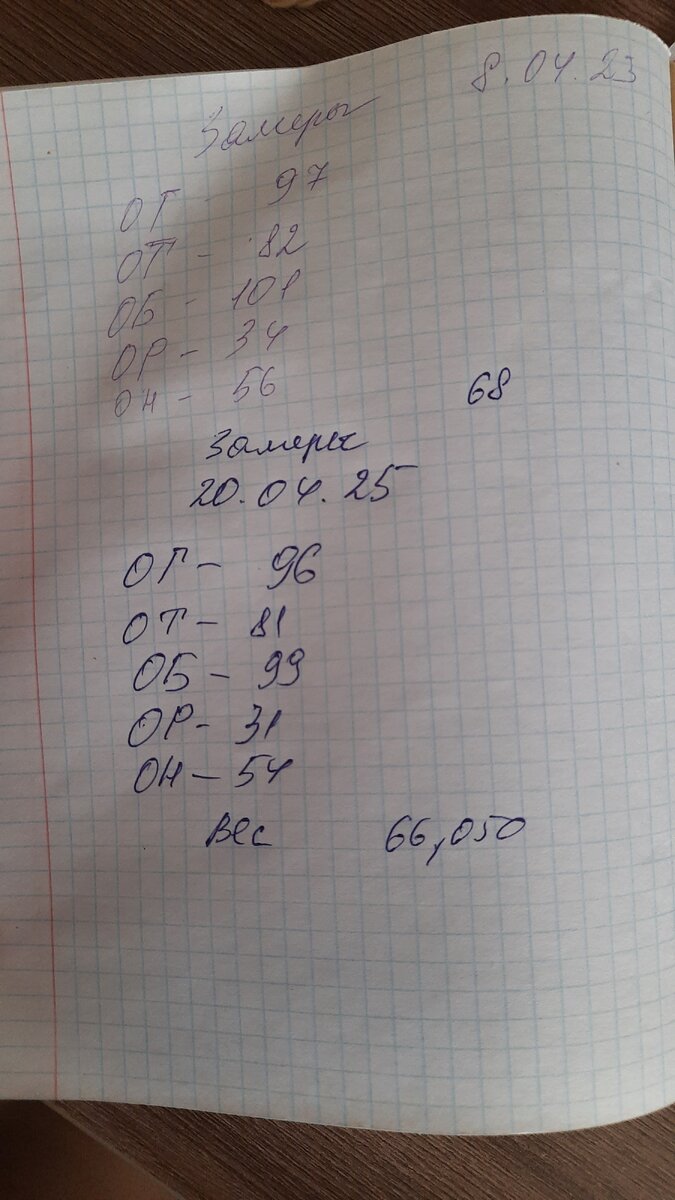 8.04.23
Замеры
ОГ - 97
ОТ - 82
ОБ - 101
ОР - 34
ОН - 56
68
Замеры
20.04.25
ОГ - 96
ОТ - 81
ОБ - 99
ОР - 31
ОН - 54
Вес 66,050